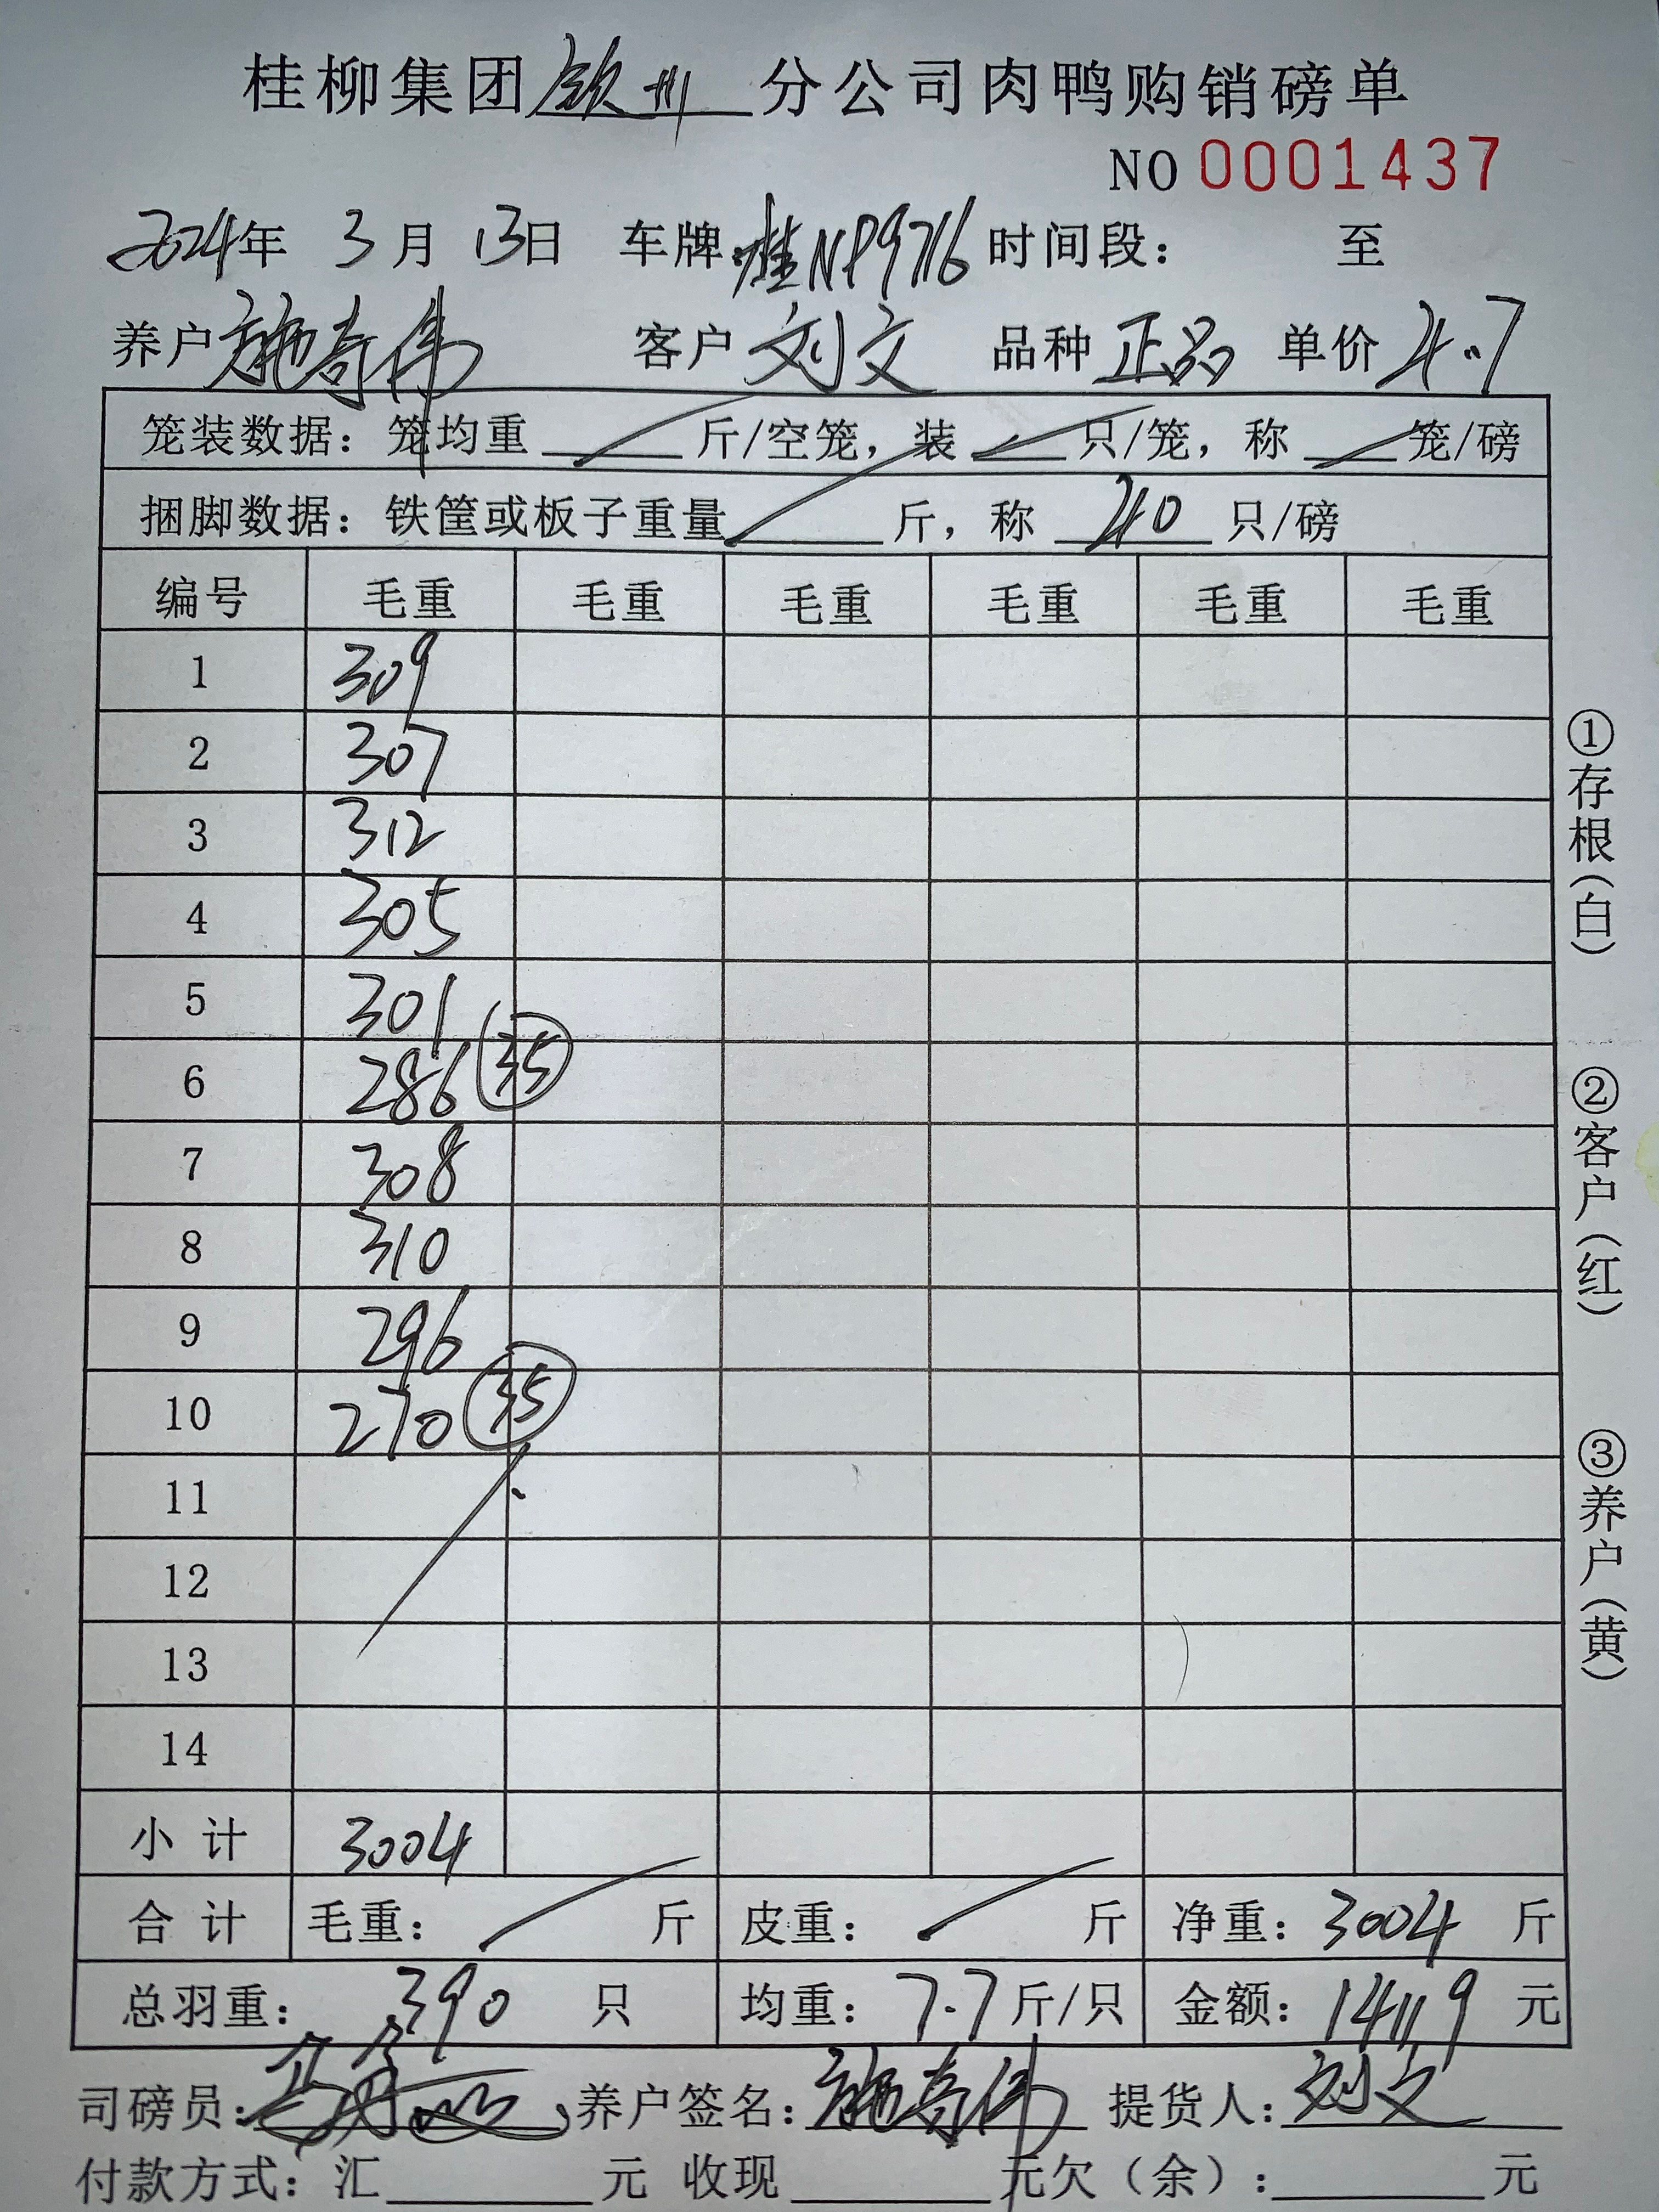 桂柳集团钦州分公司肉鸭购销磅单
NO 0001437
2024年 3月 13日 车牌:桂NP9716 时间段: 至
养户 施奇伟 客户 刘文 品种 正品 单价 4.7
笼装数据: 笼均重 斤/空笼, 装 只/笼, 称 笼/磅
捆脚数据: 铁筐或板子重量 斤, 称 40 只/磅
编号 毛重 毛重 毛重 毛重 毛重 毛重
1 309
2 307
3 312
4 305
5 301
6 286 35
7 308
8 310
9 296
10 270 35
11
12
13
14
小计 3004
合计 毛重: 斤 皮重: 斤 净重: 3004 斤
总羽重: 390 只 均重: 7.7 斤/只 金额: 14119 元
司磅员: 养户签名: 施奇伟 提货人: 刘文
付款方式: 汇 元 收现 元欠(余): 元
①存根(白)
②客户(红)
③养户(黄)